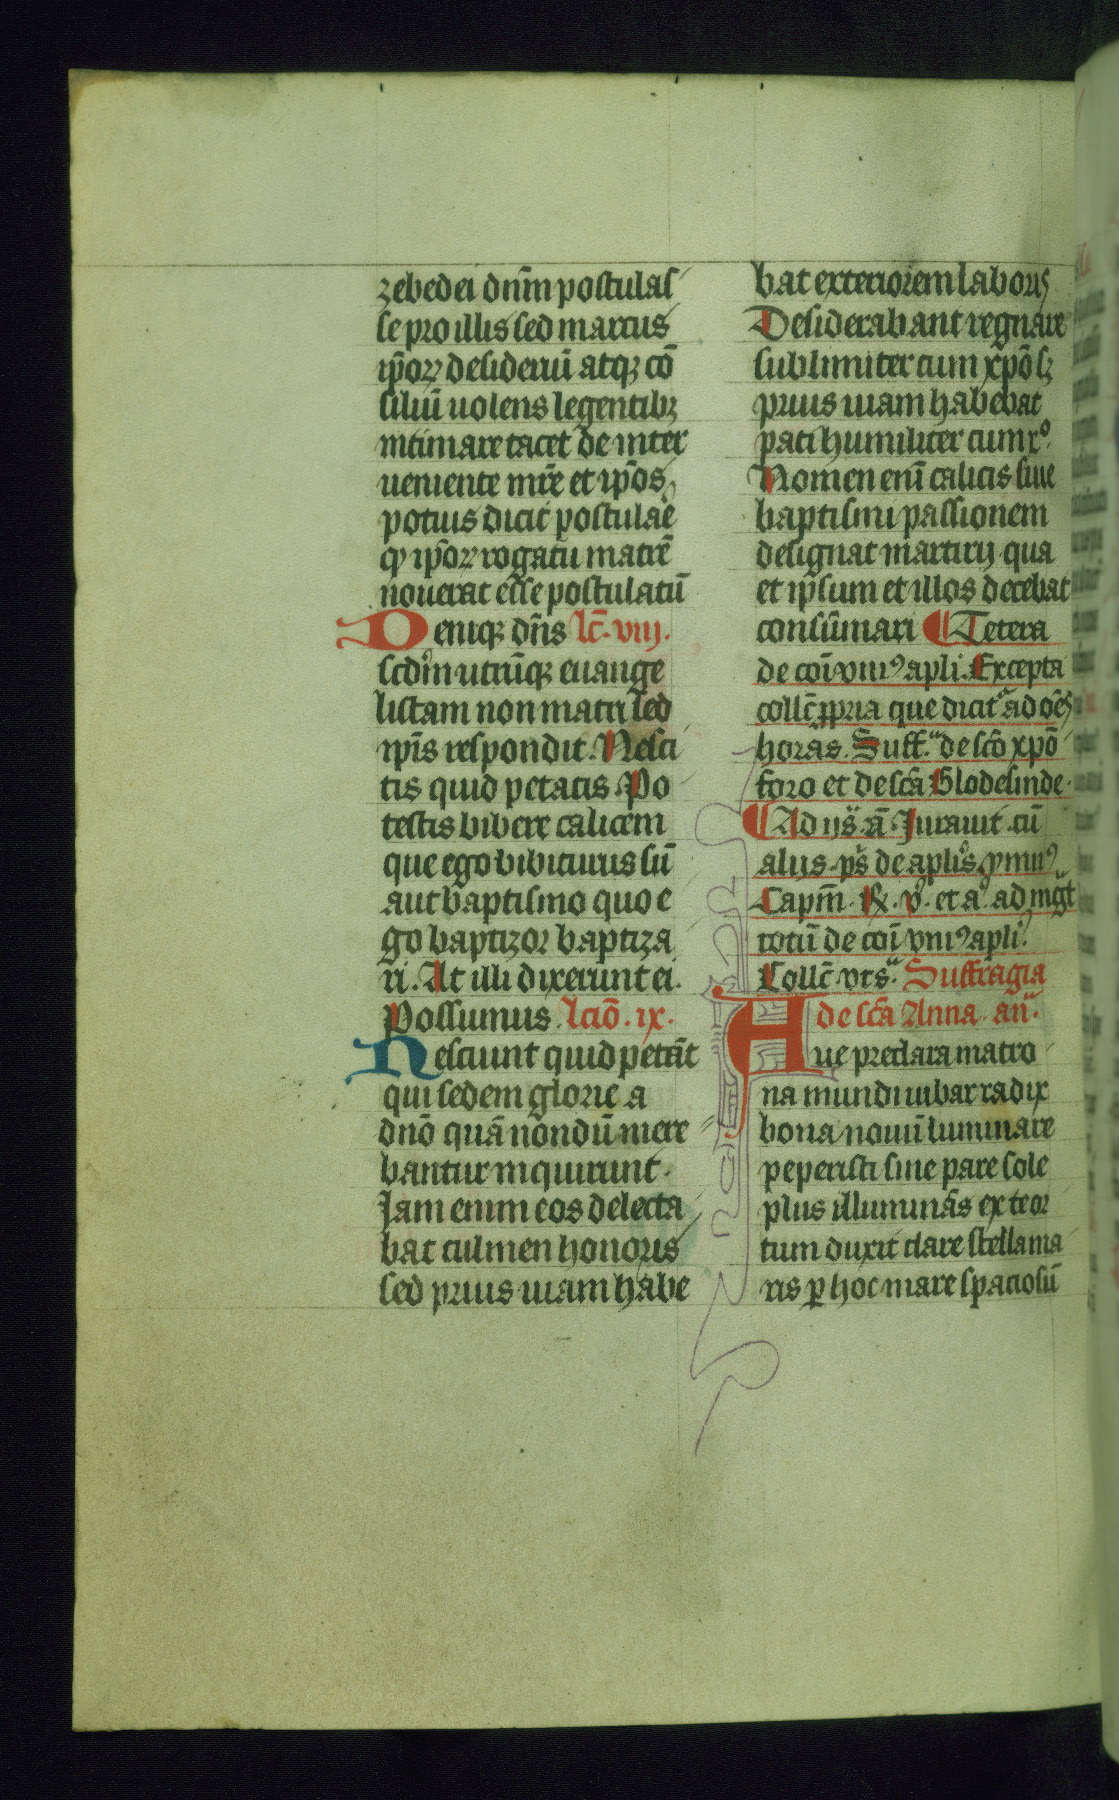 zebedei dn̄m postulas
se pro illis sed marcus
ip̄oꝝ desideriū atqꝫ cō
siliū uolens legentibꝫ
intimare tacet de inter
ueniente mr̄e et ip̄os
potius dicit postulāe
qꝫ ip̄oꝝ rogatū matrē
nouerat ēsse postulatū
Deniqꝫ dn̄s lc̄. viij.
scdm utrūqꝫ euange
listam non matri sed
ip̄is respondit. Nesci
tis quid petatis. Po
testis bibere calicem
que ego bibiturus sū
aut baptismo quo e
go baptizor baptiza
ri. At illi dixerunt ei.
Possumus. lcīo. ix.
Nesciunt quid petāt
qui sedem glorie a
dn̄o quā nondū mere
bantur inquirunt.
Jam enim eos delecta
bat culmen honoris
sed prius uiam habe
bat exteriorem laboris
Desiderabant regnare
sublimiter cum xp̄o sꝫ
prius uiam habebat
pati humiliter cum xº.
Nomen enī calicis siue
baptismi passionem
designat martirij qua
et ip̄sum et illos decebat
consūmari ¶ Cetera
de coī vniꝰ apli. Excepta
collc̄ ꝓpria que dicit̄ ad oēs
horas. Suff. de scō xpō
foro et de scā Glodesinde.
¶ Ad ijs. ā. Jurauit. cū
alijs. ps̄ de aplis. ymnꝰ
Capm̄. ꝶ. v̊. et a. ad mgt
totū de coī vniꝰ apli.
Collc̄ vts. Suffragia
de scā Anna. an̄.
Aue preclara matro
na mundi iubar radix
bona nouū luminare
peperisti sine pare sole
plus illuminās ex te or
tum duxit clare stella ma
ris ꝑ hoc mare spaciosū